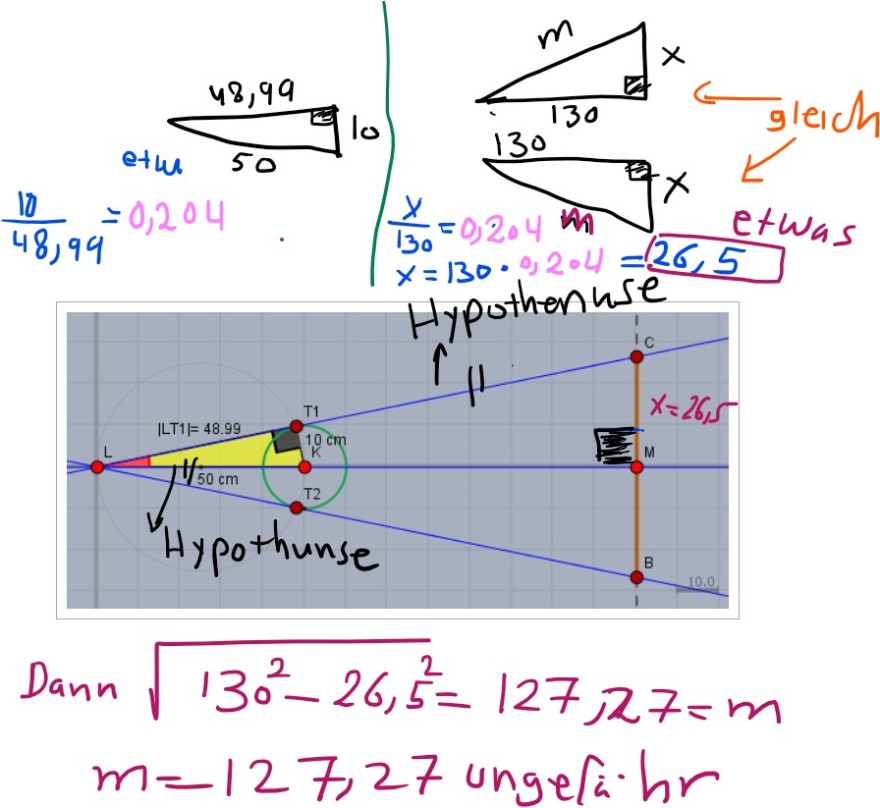 m
x
130
48,99
10
50
130
x
m
gleich
etwa
10/48,99 = 0,204
x/130 = 0,204
etwas
x = 130 · 0,204 = 26,5
Hypothenuse
C
x = 26,5
T1
|LT1|= 48.99
10 cm
L
K
M
50 cm
T2
Hypothunse
B
10.0
Dann √130² - 26,5² = 127,27 = m
m = 127,27 ungefähr